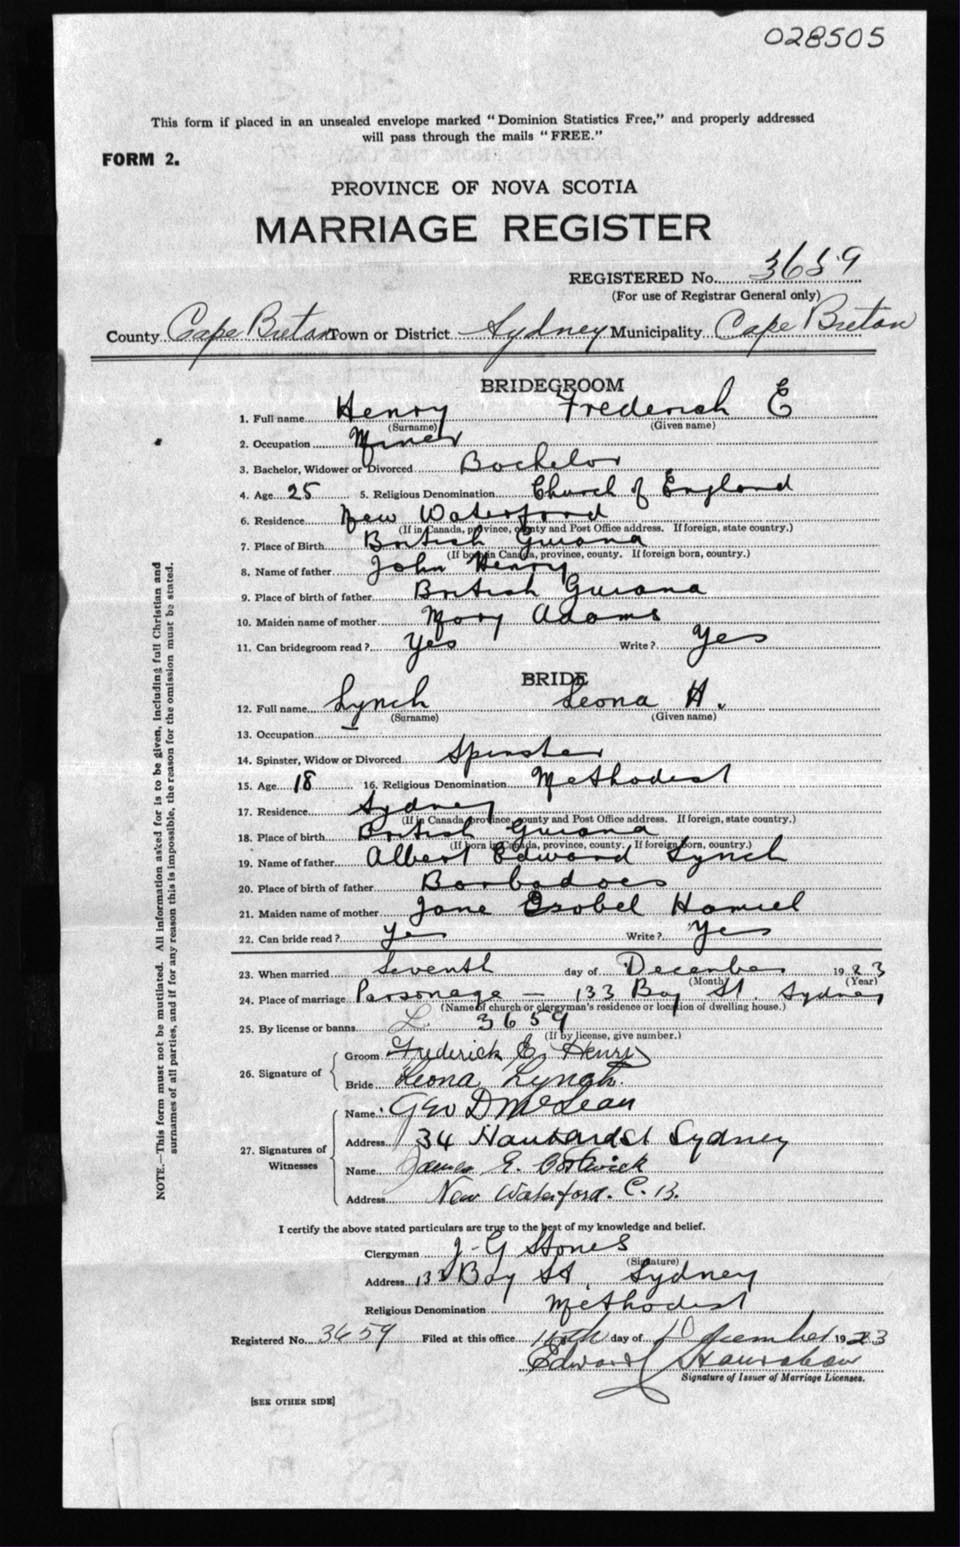 028505
This form if placed in an unsealed envelope marked "Dominion Statistics Free," and properly addressed
will pass through the mails "FREE."
FORM 2.
PROVINCE OF NOVA SCOTIA
MARRIAGE REGISTER
REGISTERED No. 3659
(For use of Registrar General only)
County Cape Breton Town or District Sydney Municipality Cape Breton
BRIDEGROOM
1. Full name Henry Frederick E
(Surname) (Given name)
2. Occupation Miner
3. Bachelor, Widower or Divorced Bachelor
4. Age 25 5. Religious Denomination Church of England
6. Residence New Waterford
(If in Canada, province, county and Post Office address. If foreign, state country.)
7. Place of Birth British Guiana
(If born in Canada, province, county. If foreign born, country.)
8. Name of father John Henry
9. Place of birth of father British Guiana
10. Maiden name of mother Mary Adams
11. Can bridegroom read? Yes Write? Yes
BRIDE
12. Full name Lynch Leona H.
(Surname) (Given name)
13. Occupation
14. Spinster, Widow or Divorced Spinster
15. Age 18 16. Religious Denomination Methodist
17. Residence Sydney
(If in Canada, province, county and Post Office address. If foreign, state country.)
18. Place of birth British Guiana
(If born in Canada, province, county. If foreign born, country.)
19. Name of father Albert Edward Lynch
20. Place of birth of father Barbadoes
21. Maiden name of mother Jane Isobel
22. Can bride read? Yes Write? Yes
23. When married Seventh day of December 1923
(Month) (Year)
24. Place of marriage Parsonage — 133 Bay St. Sydney
(Name of church or clergyman's residence or location of dwelling house.)
25. By license or banns L. 3659
(If by license, give number.)
26. Signature of
Groom Frederick E. Henry
Bride Leona Lynch.
27. Signatures of Witnesses
Name Geo D McLean
Address 34 St Sydney
Name James E. Bostwick
Address New Waterford. C. B.
I certify the above stated particulars are true to the best of my knowledge and belief.
Clergyman J-G Stones
(Signature)
Address 133 Bay St, Sydney
Religious Denomination Methodist
Registered No. 3659 Filed at this office day of December 1923
Edward
Signature of Issuer of Marriage Licenses.
[SEE OTHER SIDE]
NOTE.—This form must not be mutilated. All information asked for is to be given, including full Christian and
surnames of all parties, and if for any reason this is impossible, the reason for the omission must be stated.